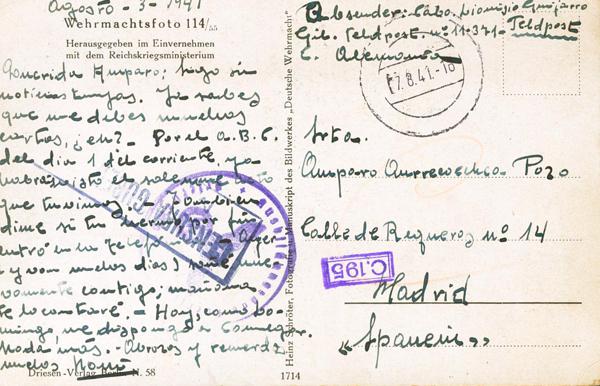 Agosto - 3 - 1941
Wehrmachtsfoto 114/55
Herausgegeben im Einvernehmen
mit dem Reichskriegsministerium
Querida Amparo: Sigo sin
noticias tuyas. Ya sabes
que me debes muchas
cartas, ¿eh? - Por el A.B.C.
del día 1 del corriente, ya
habrás visto el solemne acto
que tuvimos. - También
dime si tu por fin
entró en la Telefónica. - Ayer
(y van muchos días) soñé nue-
vamente contigo; mañana
te lo contaré. - Hoy, como do-
mingo, me dispongo a comer
Nada más. - Abrazos y recuerdos
muchos
Driesen-Verlag Berlin N. 58
1714
Heinz Schröter, Fotograf u. Manuskript des Bildwerkes „Deutsche Wehrmacht"
Absender: Cabo. Dionisio Guijarro
Feldpost nº 11.371 - Feldpost
Alemania
7.8.41.-18
Srta.
Amparo Pozo
Calle de Regueros nº 14
C.195
Madrid
"Spanien"